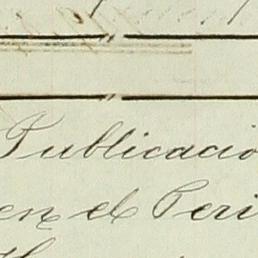 Publicació
en el Peri